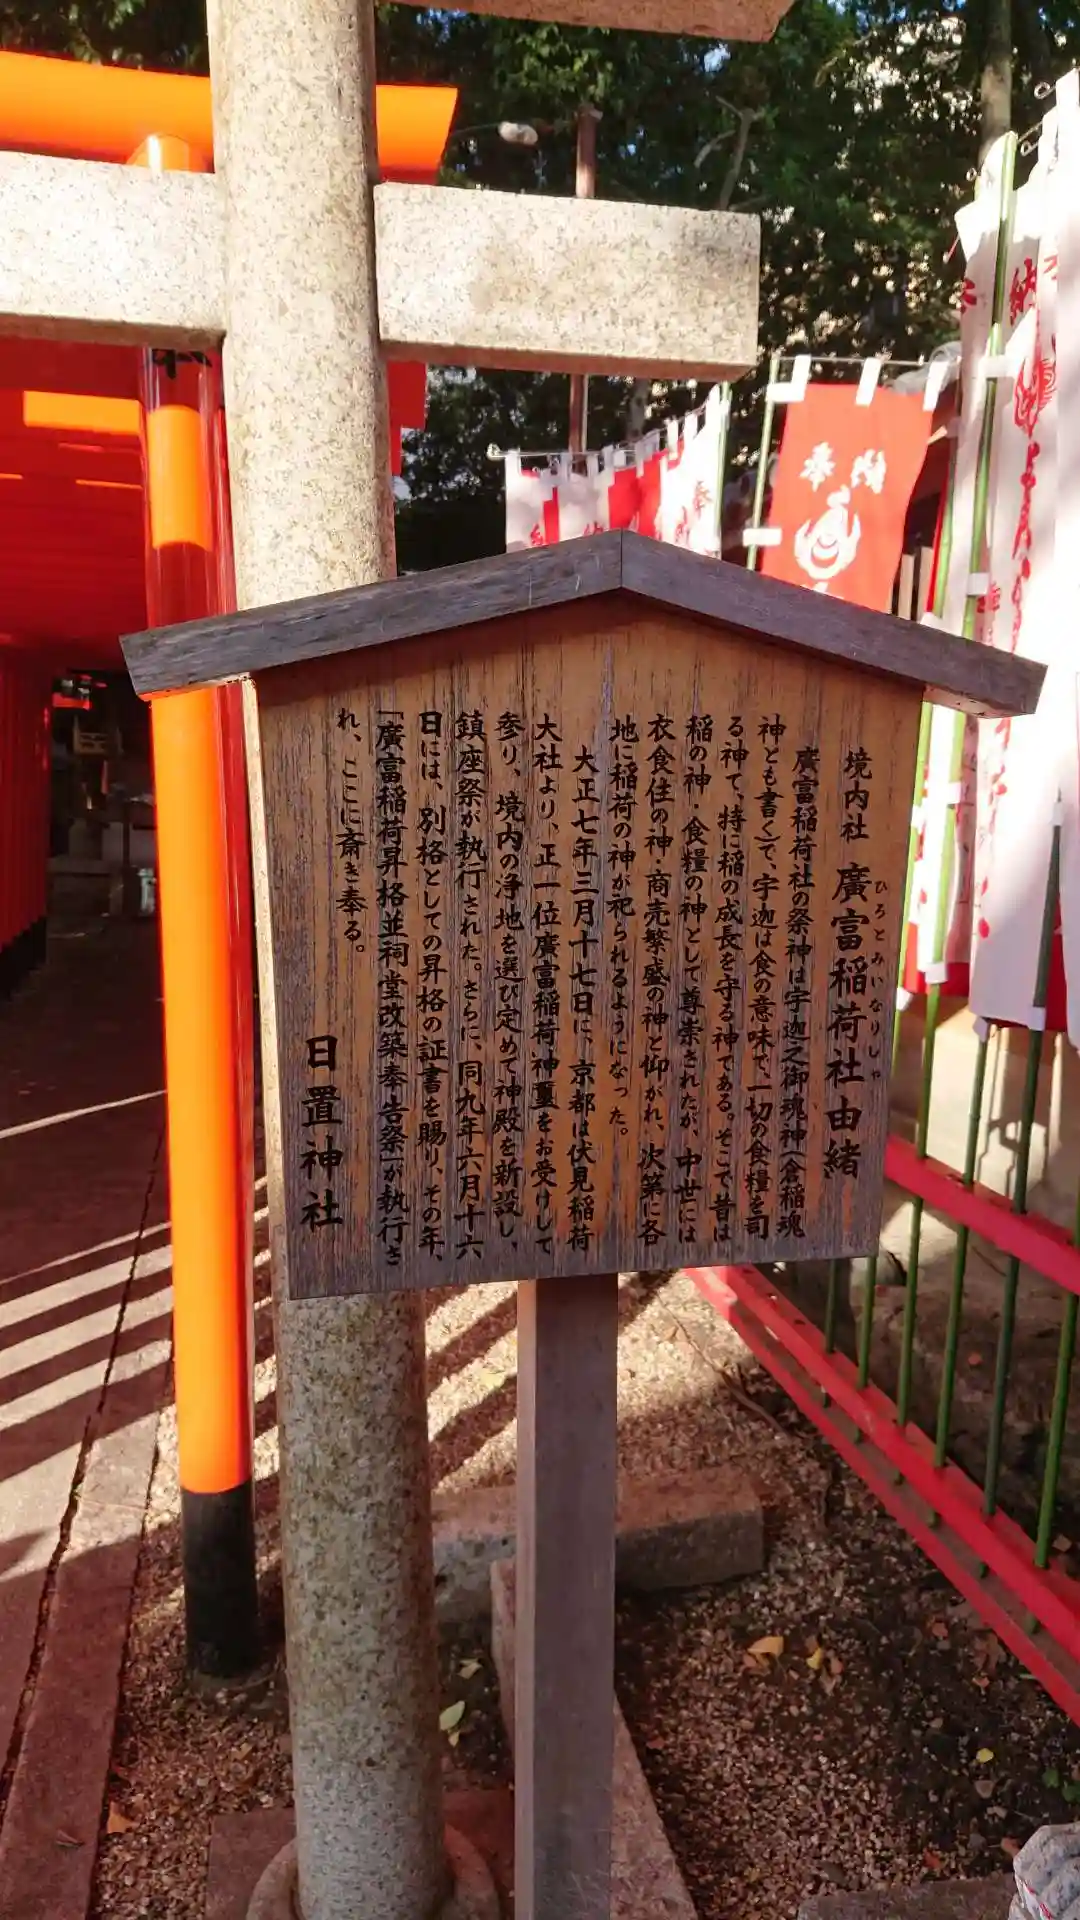 境内社 廣富稲荷社由緒
ひろとみいなりしゃ
廣富稲荷社の祭神は宇迦之御魂神(倉稲魂
神とも書く)で、宇迦は食の意味で、一切の食糧を司
る神で、特に稲の成長を守る神である。そこで昔は
稲の神・食糧の神として尊崇されたが、中世には
衣食住の神・商売繁盛の神と仰がれ、次第に各
地に稲荷の神が祀られるようになった。
大正七年三月十七日に、京都は伏見稲荷
大社より、正一位廣富稲荷神璽をお受けして
参り、境内の浄地を選び定めて神殿を新設し、
鎮座祭が執行された。さらに、同九年六月十六
日には、別格としての昇格の証書を賜り、その年、
「廣富稲荷昇格並祠堂改築奉告祭」が執行さ
れ、ここに斎き奉る。
日置神社
奉納
奉納
納